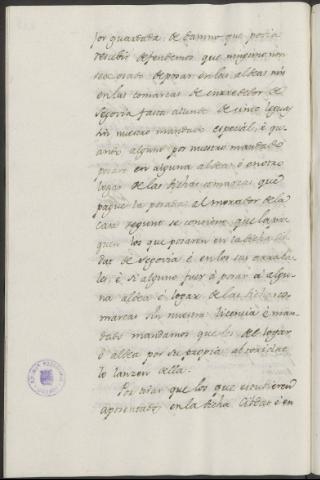 por guardada de damno que podia
recebir defendemos que ninguno non
sea osado de posar en las aldeas nin
en las comarcas de enrededor de
Segovia fasta cinco leguas
sin nuestro mandado especial, é qu
ando alguno por nuestro mandado
posare en alguna aldea ó en otro
logar de las dichas comarcas que
pague la posada al morador de la
casa segunt se contiene que la pa
guen los que posaren en la dicha Cib
dat de Segovia é en los sus arraba
les é si alguno fuer á posar á algu
na aldea é logar de las dichas co
marcas sin nuestra licencia é man
dado mandamos que los del logar
ó aldea por su propia abtoridat
lo lanzen della.
Por tirar que los que estudieren
aposentados en la dicha Cibdat é en